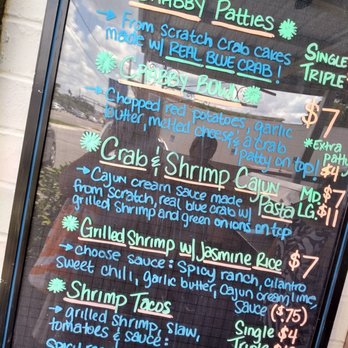 Patties
→ From scratch crab cakes
made w/ REAL BLUE CRAB!
Single
Triple
Crabby Bowl
$7
→ Chopped red potatoes, garlic
butter, melted cheese, & a crab
patty on top!
*Extra
Patty
$4
Crab & Shrimp Cajun
Pasta
MD. $7
LG. $11
→ Cajun cream sauce made
from scratch, real blue crab w/
grilled shrimp and green onions on top
Grilled Shrimp w/ Jasmine Rice $7
→ choose sauce: Spicy ranch, cilantro lime,
sweet chili, garlic butter, Cajun cream
sauce ($.75)
Shrimp Tacos
→ grilled shrimp, slaw,
tomatoes & sauce:
Single $4
Triple
Spicy